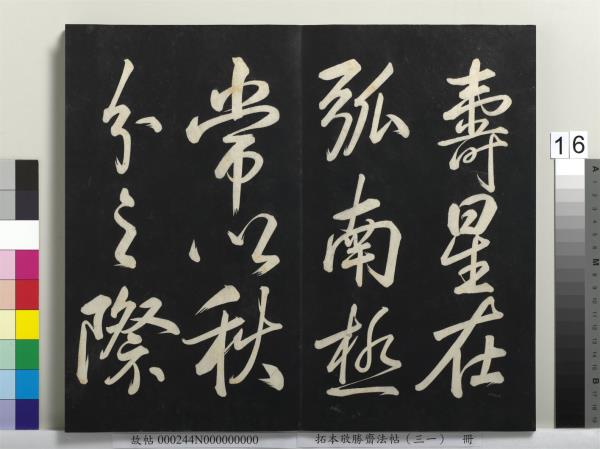 壽星在
弧南極
常以秋
分之際
故帖 000244N000000000 拓本敬勝齋法帖（三一） 冊
16